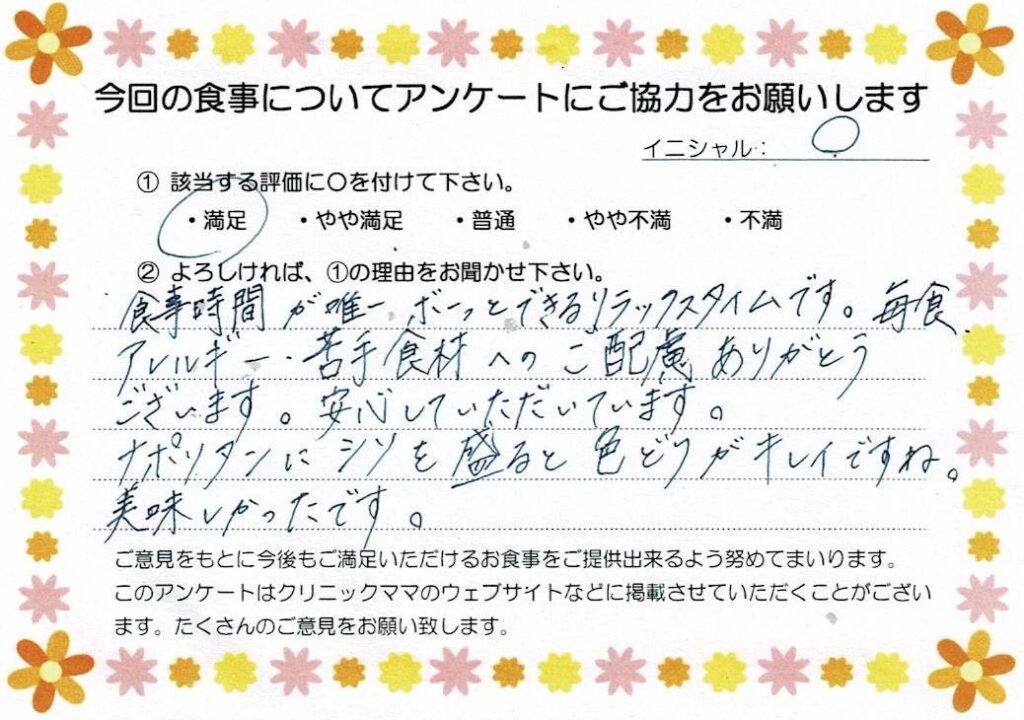 今回の食事についてアンケートにご協力をお願いします
イニシャル： O
① 該当する評価に〇を付けて下さい。
・満足 ・やや満足 ・普通 ・やや不満 ・不満
② よろしければ、①の理由をお聞かせ下さい。
食事時間が唯一ボーっとできるリラックスタイムです。毎食、
アレルギー・苦手食材へのご配慮ありがとう
ございます。安心していただいています。
ナポリタンにシソを盛ると色どりがキレイですね。
美味しかったです。
ご意見をもとに今後もご満足いただけるお食事をご提供出来るよう努めてまいります。
このアンケートはクリニックママのウェブサイトなどに掲載させていただくことがござい
ます。たくさんのご意見をお願い致します。